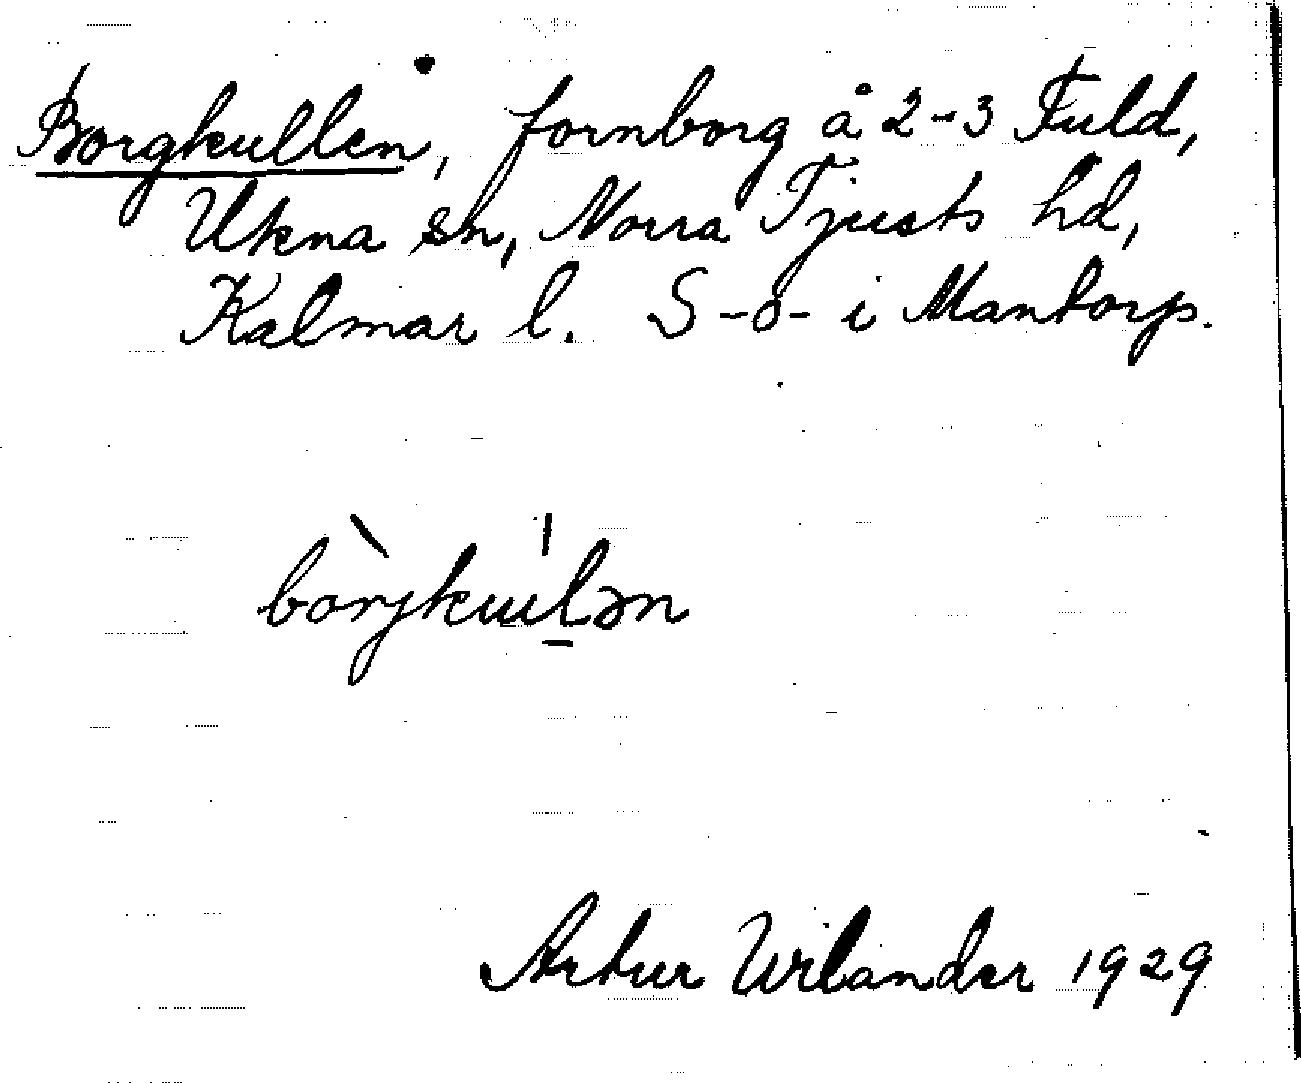 Borgkullen, fornborg å 2-3 Fuld,
Ukna sn, Norra Tjusts hd,
Kalmar l. S-o- i Mantorp.
bòrjkuu̍l̠ən
Artur Wilander 1929